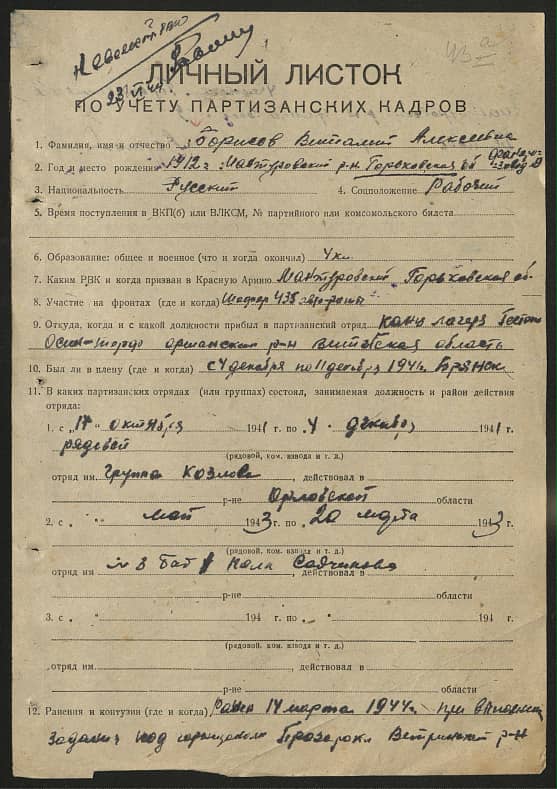 23/VI 44
ЛИЧНЫЙ ЛИСТОК
ПО УЧЕТУ ПАРТИЗАНСКИХ КАДРОВ
1. Фамилия, имя и отчество Борисов Виталий Алексеевич
2. Год и место рождения 1912 г. Мантуровский р-н Горьковская об
3. Национальность Русский 4. Соцположение Рабочий
5. Время поступления в ВКП(б) или ВЛКСМ, № партийного или комсомольского билета
6. Образование: общее и военное (что и когда окончил) 4 кл.
7. Каким РВК и когда призван в Красную Армию Мантуровский Горьковская об.
8. Участие на фронтах (где и когда) 435
9. Откуда, когда и с какой должности прибыл в партизанский отряд конц лагеря
Оршанский р-н Витебская область
10. Был ли в плену (где и когда) с 4 декабря по 11 декабря 1941 г. Брянск
11. В каких партизанских отрядах (или группах) состоял, занимаемая должность и район действия
отряда:
1. с „17“ октября 1941 г. по 4 декабря 1941 г.
рядовой
(рядовой, ком. взвода и т. д.)
отряд им. группа Козлова, действовал в
р-не Орловской области
2. с „ “ май 1943 г. по 20 марта 1943 г.
(рядовой, ком. взвода и т. д.)
отряд им 3 Бат Полк Садчикова, действовал в
р-не области
3. с „ “ 194 г. по „ “ 194 г.
(рядовой, ком. взвода и т. д.)
отряд им. действовал в
р-не области
12. Ранения и контузии (где и когда) Ранен 14 марта 1944 г. при
задания под Прозороки Ветринский р-н